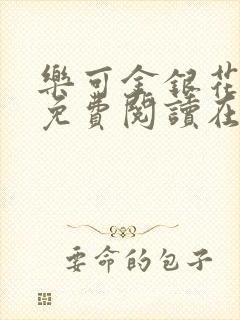 樂可金銀花
免費閱讀在
要命的包子